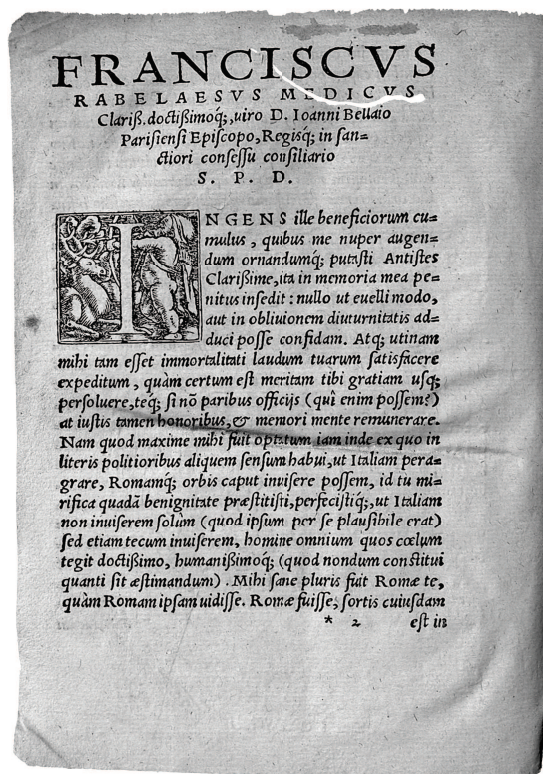 FRANCISCVS
RABELAESVS MEDICVS
Clariß. doctißimoq;, uiro D. Ioanni Bellaio
Parisiensi Episcopo, Regisq; in san=
ctiori consessu consiliario
S. P. D.
INGENS ille beneficiorum cu=
mulus, quibus me nuper augen=
dum ornandumq; putasti Antistes
Clarißime, ita in memoria mea pe=
nitus insedit : nullo ut euelli modo,
aut in obliuionem diuturnitatis ad=
duci posse confidam. Atq; utinam
mihi tam esset immortalitati laudum tuarum satisfacere
expeditum, quàm certum est meritam tibi gratiam usq;
persoluere, teq́; si nõ paribus officijs (quî enim possem?)
at iustis tamen honoribus, & memori mente remunerare.
Nam quod maxime mihi fuit optatum iam inde ex quo in
literis politioribus aliquem sensum habui, ut Italiam pera=
grare, Romamq; orbis caput inuisere possem, id tu mi=
rifica quadã benignitate præstitisti, perfecistiq;, ut Italiam
non inuiserem solùm (quod ipsum per se plausibile erat)
sed etiam tecum inuiserem, homine omnium quos cœlum
tegit doctißimo, humanißimoq́; (quod nondum constitui
quanti sit æstimandum). Mihi sane pluris fuit Romæ te,
quàm Romam ipsam uidisse. Romæ fuisse, sortis cuiusdam
* 2 est in